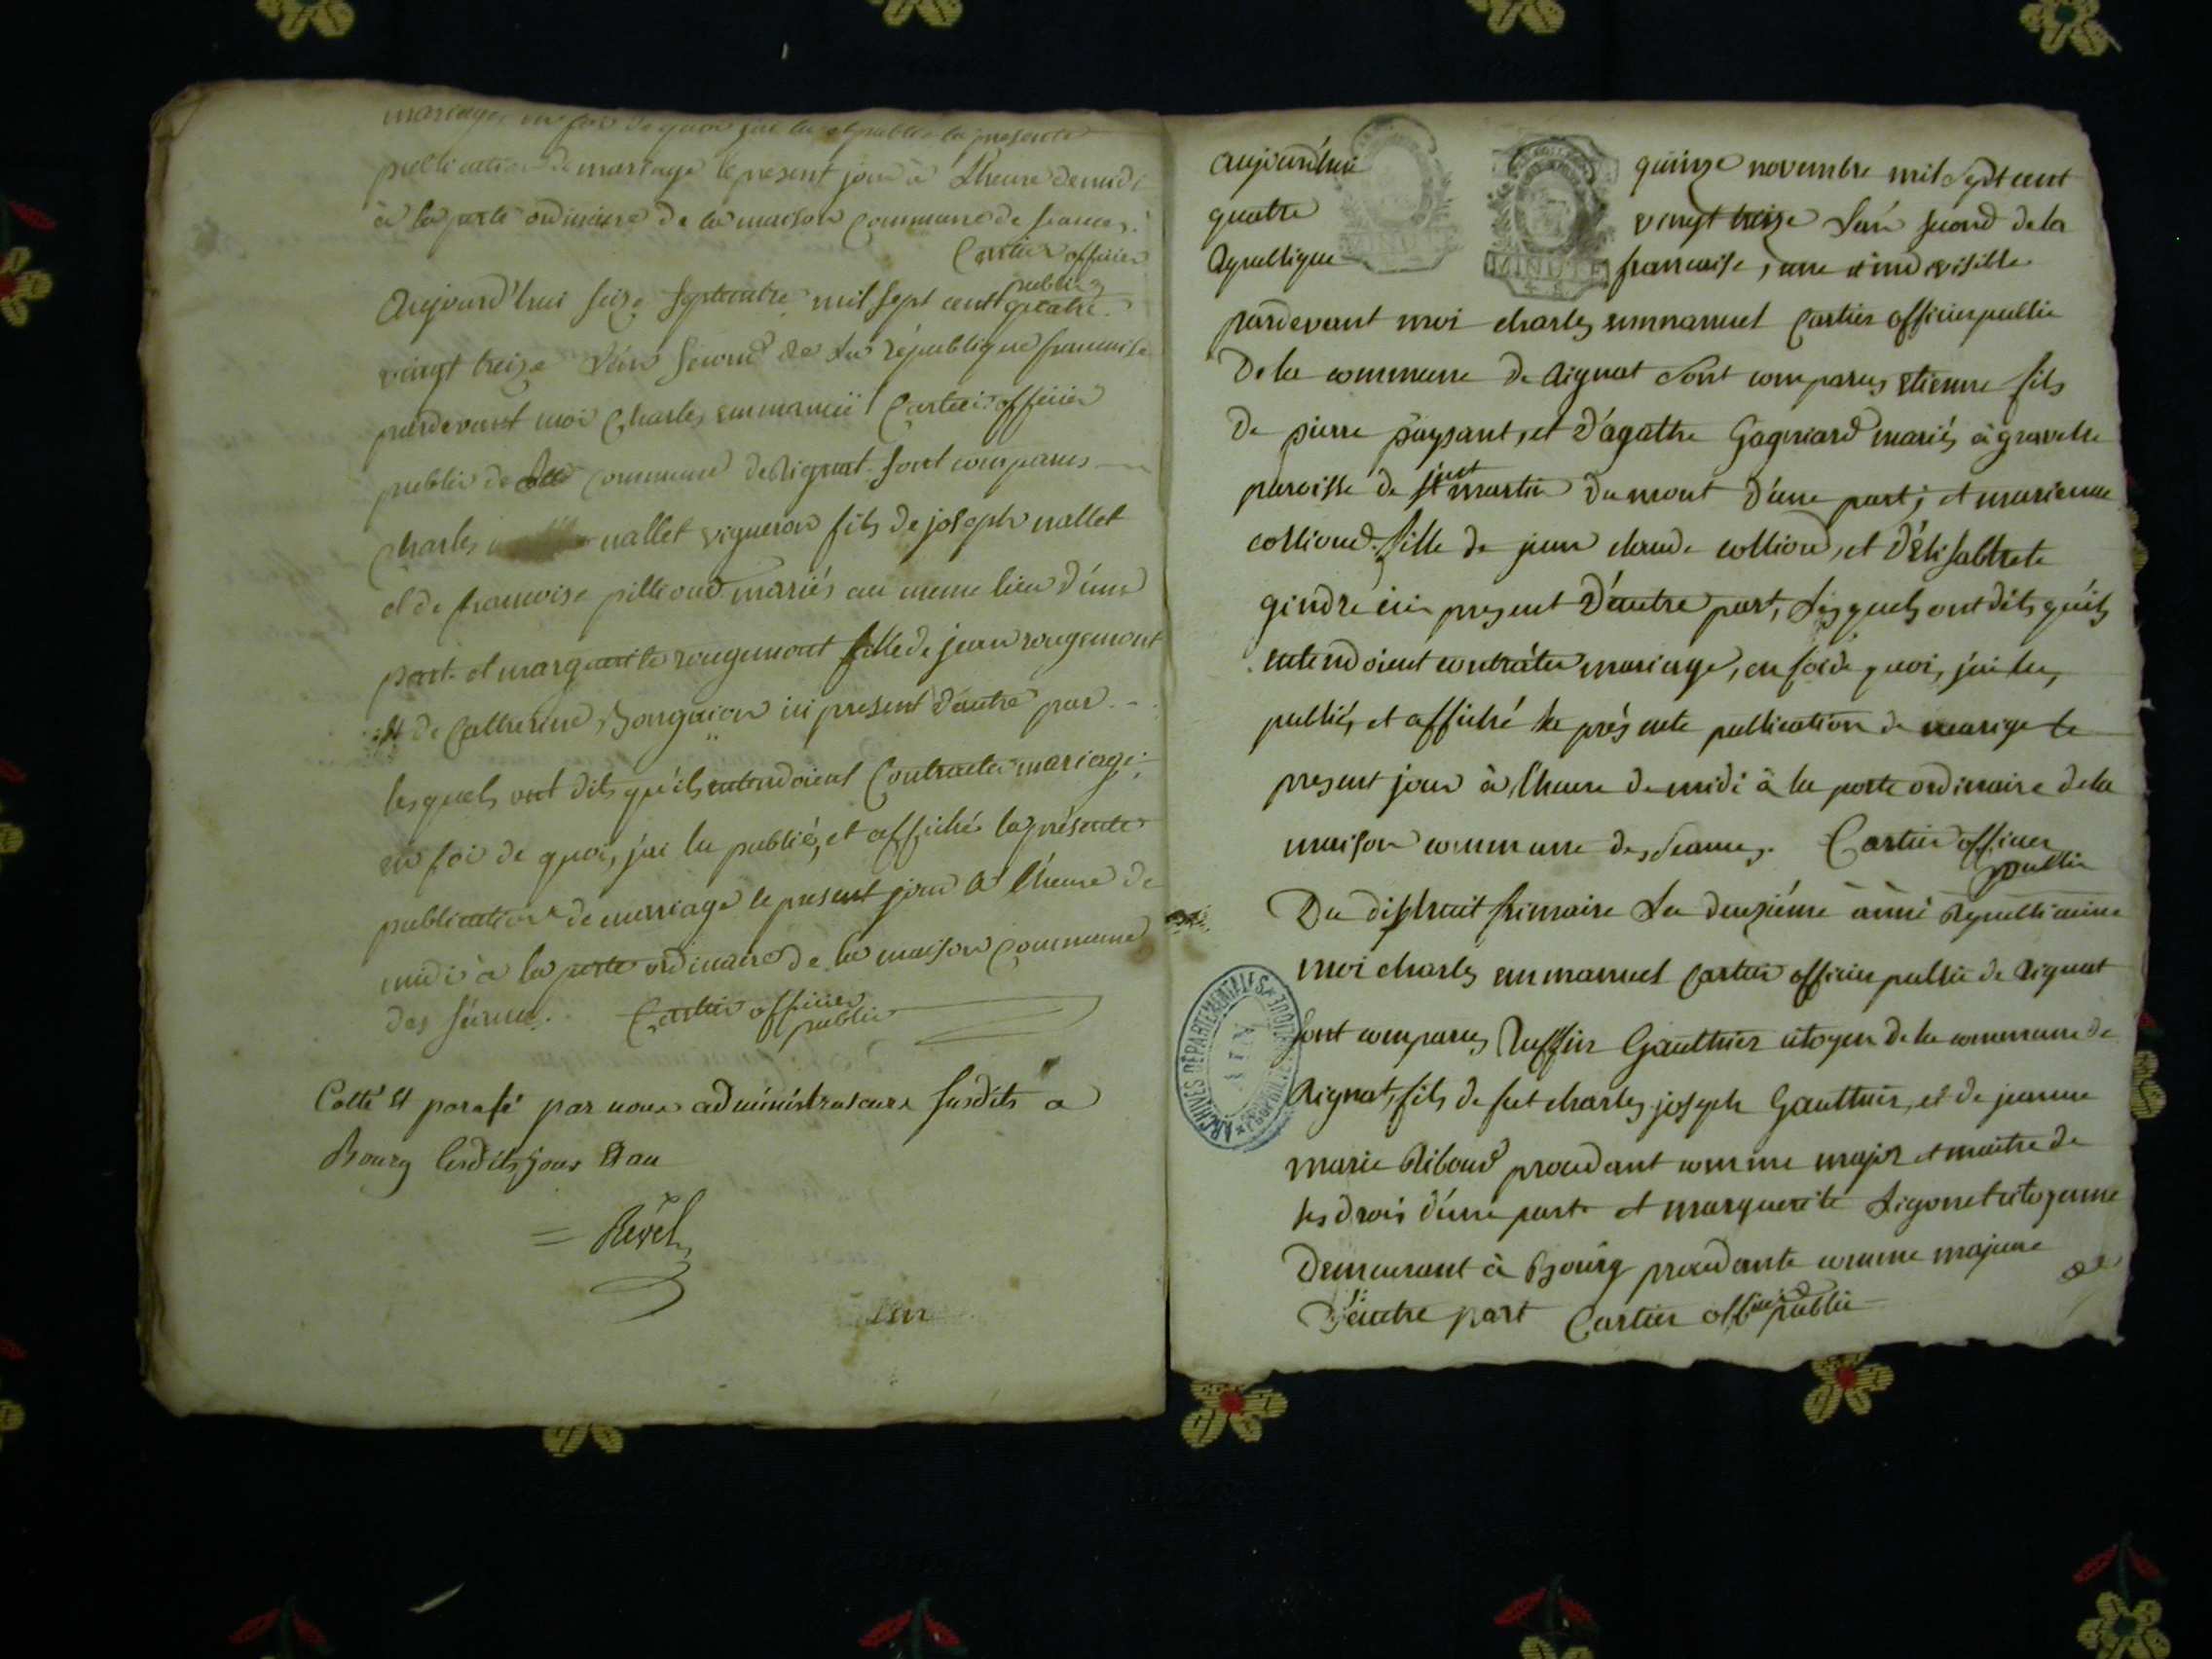 mariage, en foi de quoi j'ai lu et publié la presente
publication de mariage le present jour à L'heure de midi
à la porte ordinaire de la maison Commune de seances.
Cartier officier
public
Aujourd'hui seize septembre mil sept cent quatre
vingt treize L'an second de La république francaise
pardevant moi Charles emmanuel Cartier officier
public de la Commune de Rignat sont comparus
Charles nallet vigneron fils de joseph nallet
et de francoise pillioud mariés au meme lieu d'une
part et marguerite rougemont fille de jean rougemont
et de Catherine ici present d'autre par
lesquels ont dits qu'ils entendoient Contracter mariage;
en foi de quoi, j'ai lu publié, et affiché la présente
publication de mariage le present jour à l'heure de
midi à la porte ordinaire de la maison Commune
des séances. Cartier officier
public
Cotté et parafé par nous administrateurs susdits a
Bourg lesdits jour et an
Rével
L'an
aujourd'hui quinze novembre mil sept cent
MINUTE
quatre vingt treize L'an second de la
Republique francaise, une et indivisible
MINUTE
4. S.
pardevant moi charles emmanuel Cartier officier public
De la commune de Rignat sont comparus etienne fils
De pierre paysant, et d'agathe Gagniard mariés à gravelle
paroisse de st martin du mont d'une part; et marienne
collioud fille de jean claude collioud, et d'élisabhete
gindre ici present d'autre part, Lesquels ont dits qu'ils
entendoient contracter mariage, en foi de quoi, j'ai lu,
publié, et affiché la présente publication de mariage le
present jour à l'heure de midi à la porte ordinaire de la
maison commune des seances. Cartier officer
public
Du dixhuit frimaire La deuxiéme année Republicaine
moi charles emmanuel Cartier officier public de Rignat
sont comparus Ruffin Gauthier citoyen de la commune de
Rignat, fils de feu charles joseph Gauthier, et de jeanne
marie Riboud procedant comme major et maitre de
ses drois d'une part et marguerite Ligonet citoyenne
Demeurant à Bourg procedante comme majeure
D'autre part Cartier officier public
ARCHIVES DÉPARTEMENTALES
AIN